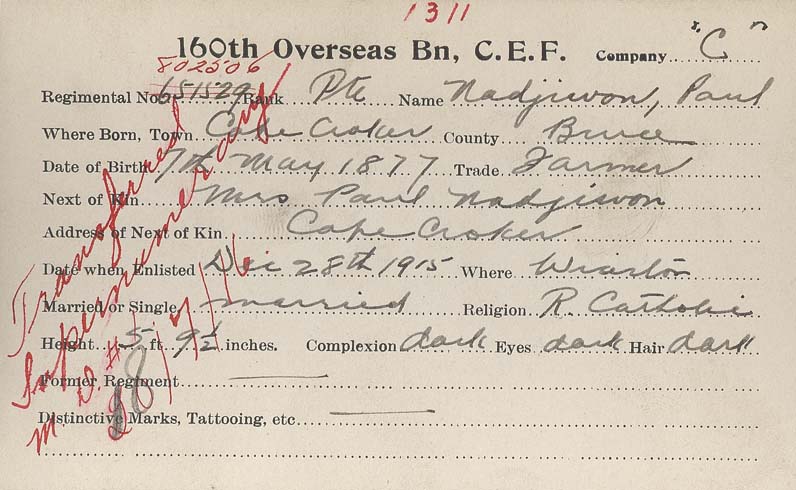 1311
160th Overseas Bn, C.E.F. Company "C"
802506
Regimental No. 651529 Rank Pte Name Nadjiwon, Paul
Where Born, Town Cape Croker County Bruce
Date of Birth 7th May 1877 Trade Farmer
Next of Kin Mrs Paul Nadjiwon
Address of Next of Kin Cape Croker
Date when Enlisted Dec 28th 1915 Where Wiarton
Married or Single married Religion R. Catholic
Height 5 ft. 9½ inches. Complexion dark Eyes dark Hair dark
Former Regiment
Distinctive Marks, Tattooing, etc
Transferred
Supernumerary
M.D. #